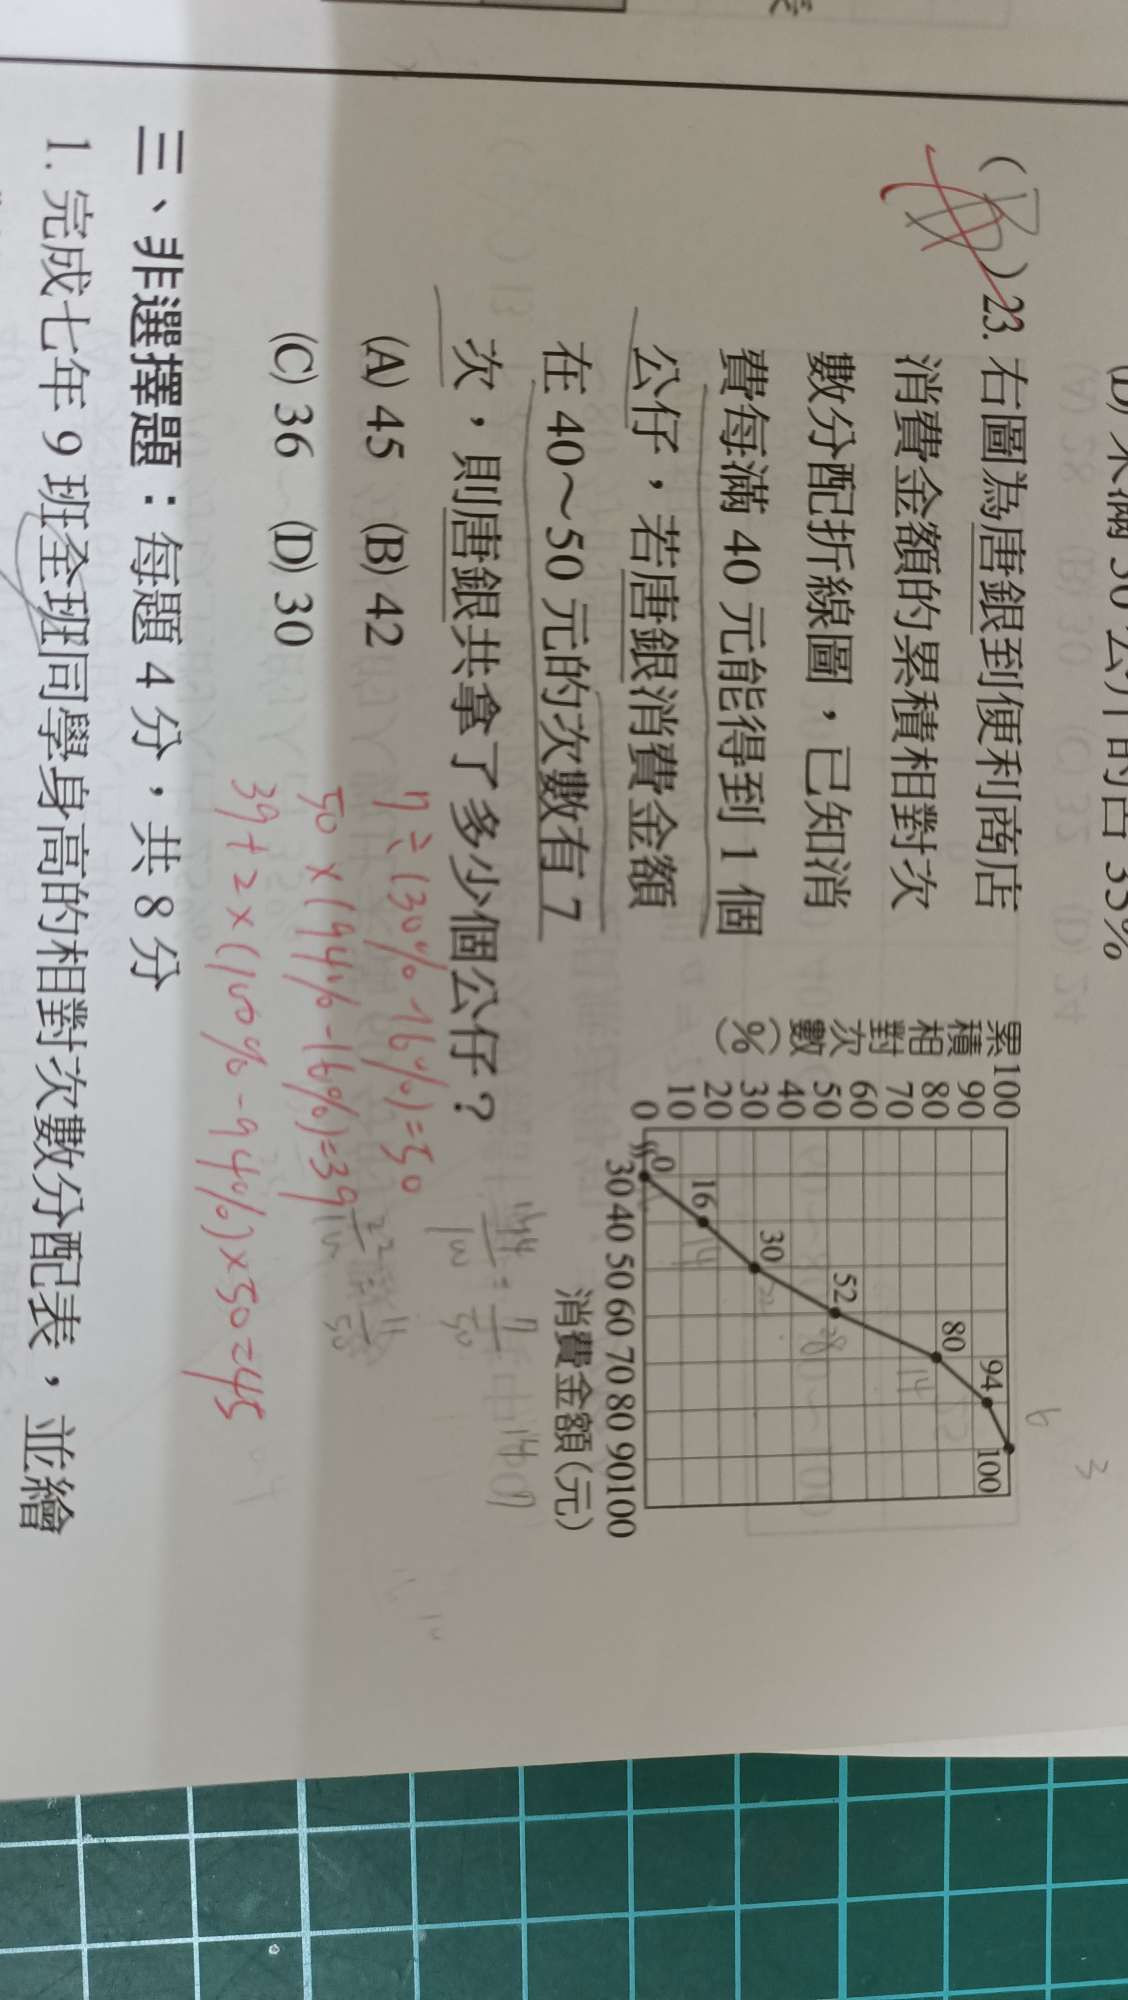 (B)23. 右圖為唐銀到便利商店
消費金額的累積相對次
數分配折線圖，已知消
費每滿 40 元能得到 1 個
公仔，若唐銀消費金額
在 40～50 元的次數有 7
次，則唐銀共拿了多少個公仔？
(A) 45 (B) 42
(C) 36 (D) 30
累積相對次數(%)
100
90
80
70
60
50
40
30
20
10
0
0
16
30
52
80
94
100
30 40 50 60 70 80 90 100
消費金額(元)
7÷(30%-16%)=50
50×(94%-16%)=39
39+2×(100%-94%)×50=45
三、非選擇題：每題 4 分，共 8 分
1. 完成七年 9 班全班同學身高的相對次數分配表，並繪